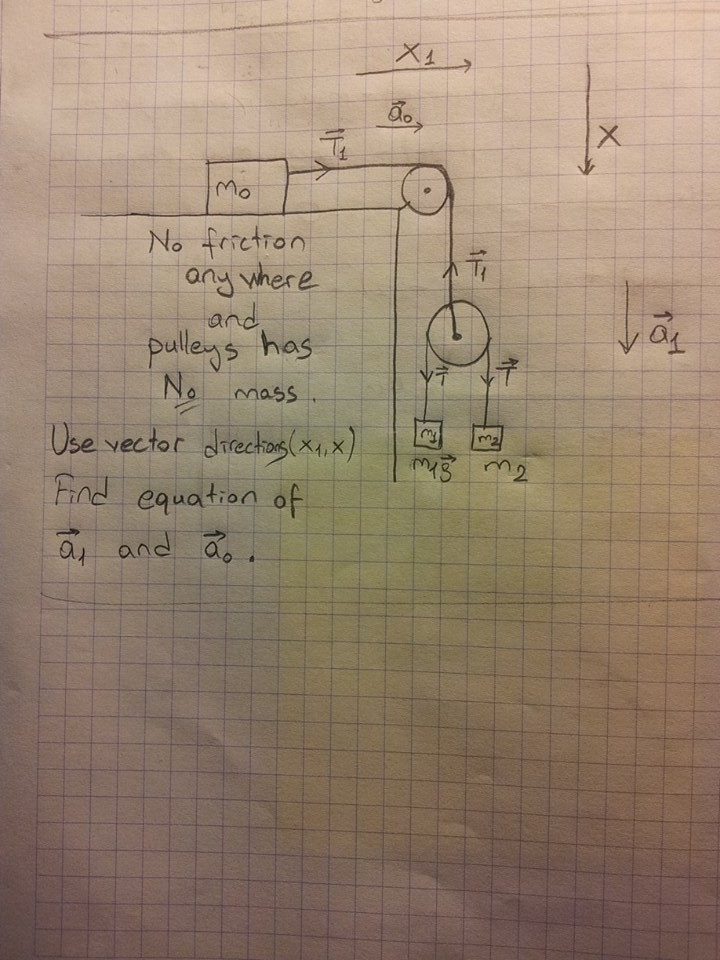 X₁
a⃗₀
T⃗₁
X
m₀
No friction
any where
and
pulleys has
No mass.
T⃗₁
a⃗₁
T⃗
T⃗
m₁
m₂
m₁g⃗
m₂
Use vector directions(x₁,x)
Find equation of
a⃗₁ and a⃗₀.